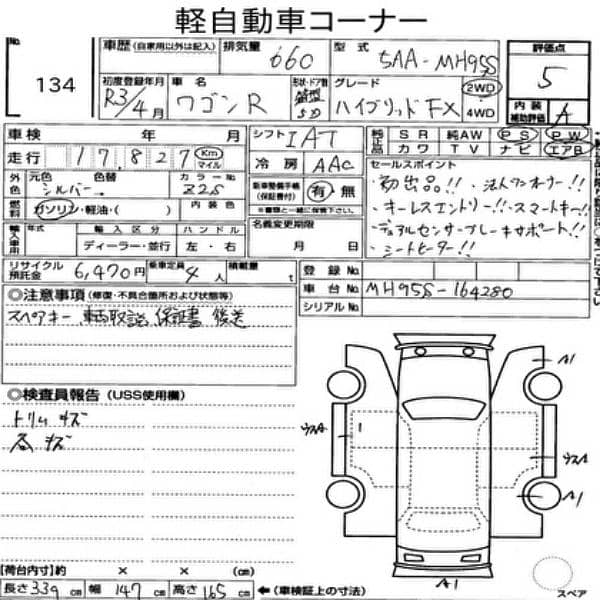 軽自動車コーナー
No. 134
車歴 (自家用以外は記入) 排気量 660 型式 5AA-MH95S 評価点 5
初度登録年月 R3/4月 車名 ワゴンR 形状・ドア数 箱型 5D グレード ハイブリッド FX 2WD 4WD 内装補助評価 A
車検 年 月 シフト IAT 純正品 SR 純AW PS PW
カワ TV ナビ エアB
走行 17,827 Km マイル 冷房 AAC セールスポイント
外色 元色 シルバー 色替 カラーNo Z2S 車両整備手帳(保証書付) 有・無 ※書類と一緒に保管下さい
・初出品!! ・法人ワンオーナー!!
・キーレスエントリー!! ・スマートキー!!
・デュアルセンサーブレーキサポート!!
・シートヒーター!!
燃料 ガソリン・軽油・( ) 内装色 名義変更期限
輸入車用 年式 輸入区分 ハンドル
ディーラー・並行 左・右 月 日
リサイクル預託金 6,470円 乗車定員 4人 積載量 t 登録No.
車台No. MH95S-164280
シリアルNo.
◎注意事項 (修復・不具合箇所および状態等)
スペアキー 車両取説 保証書 後送
◎検査員報告 (USS使用欄)
トリムキズ
谷キズ
A1
ウスA
1
ウスA
A1
A1
スペア
【荷台内寸】約 × × (cm)
長さ 339 cm 幅 147 cm 高さ 165 cm ←(車検証上の寸法)